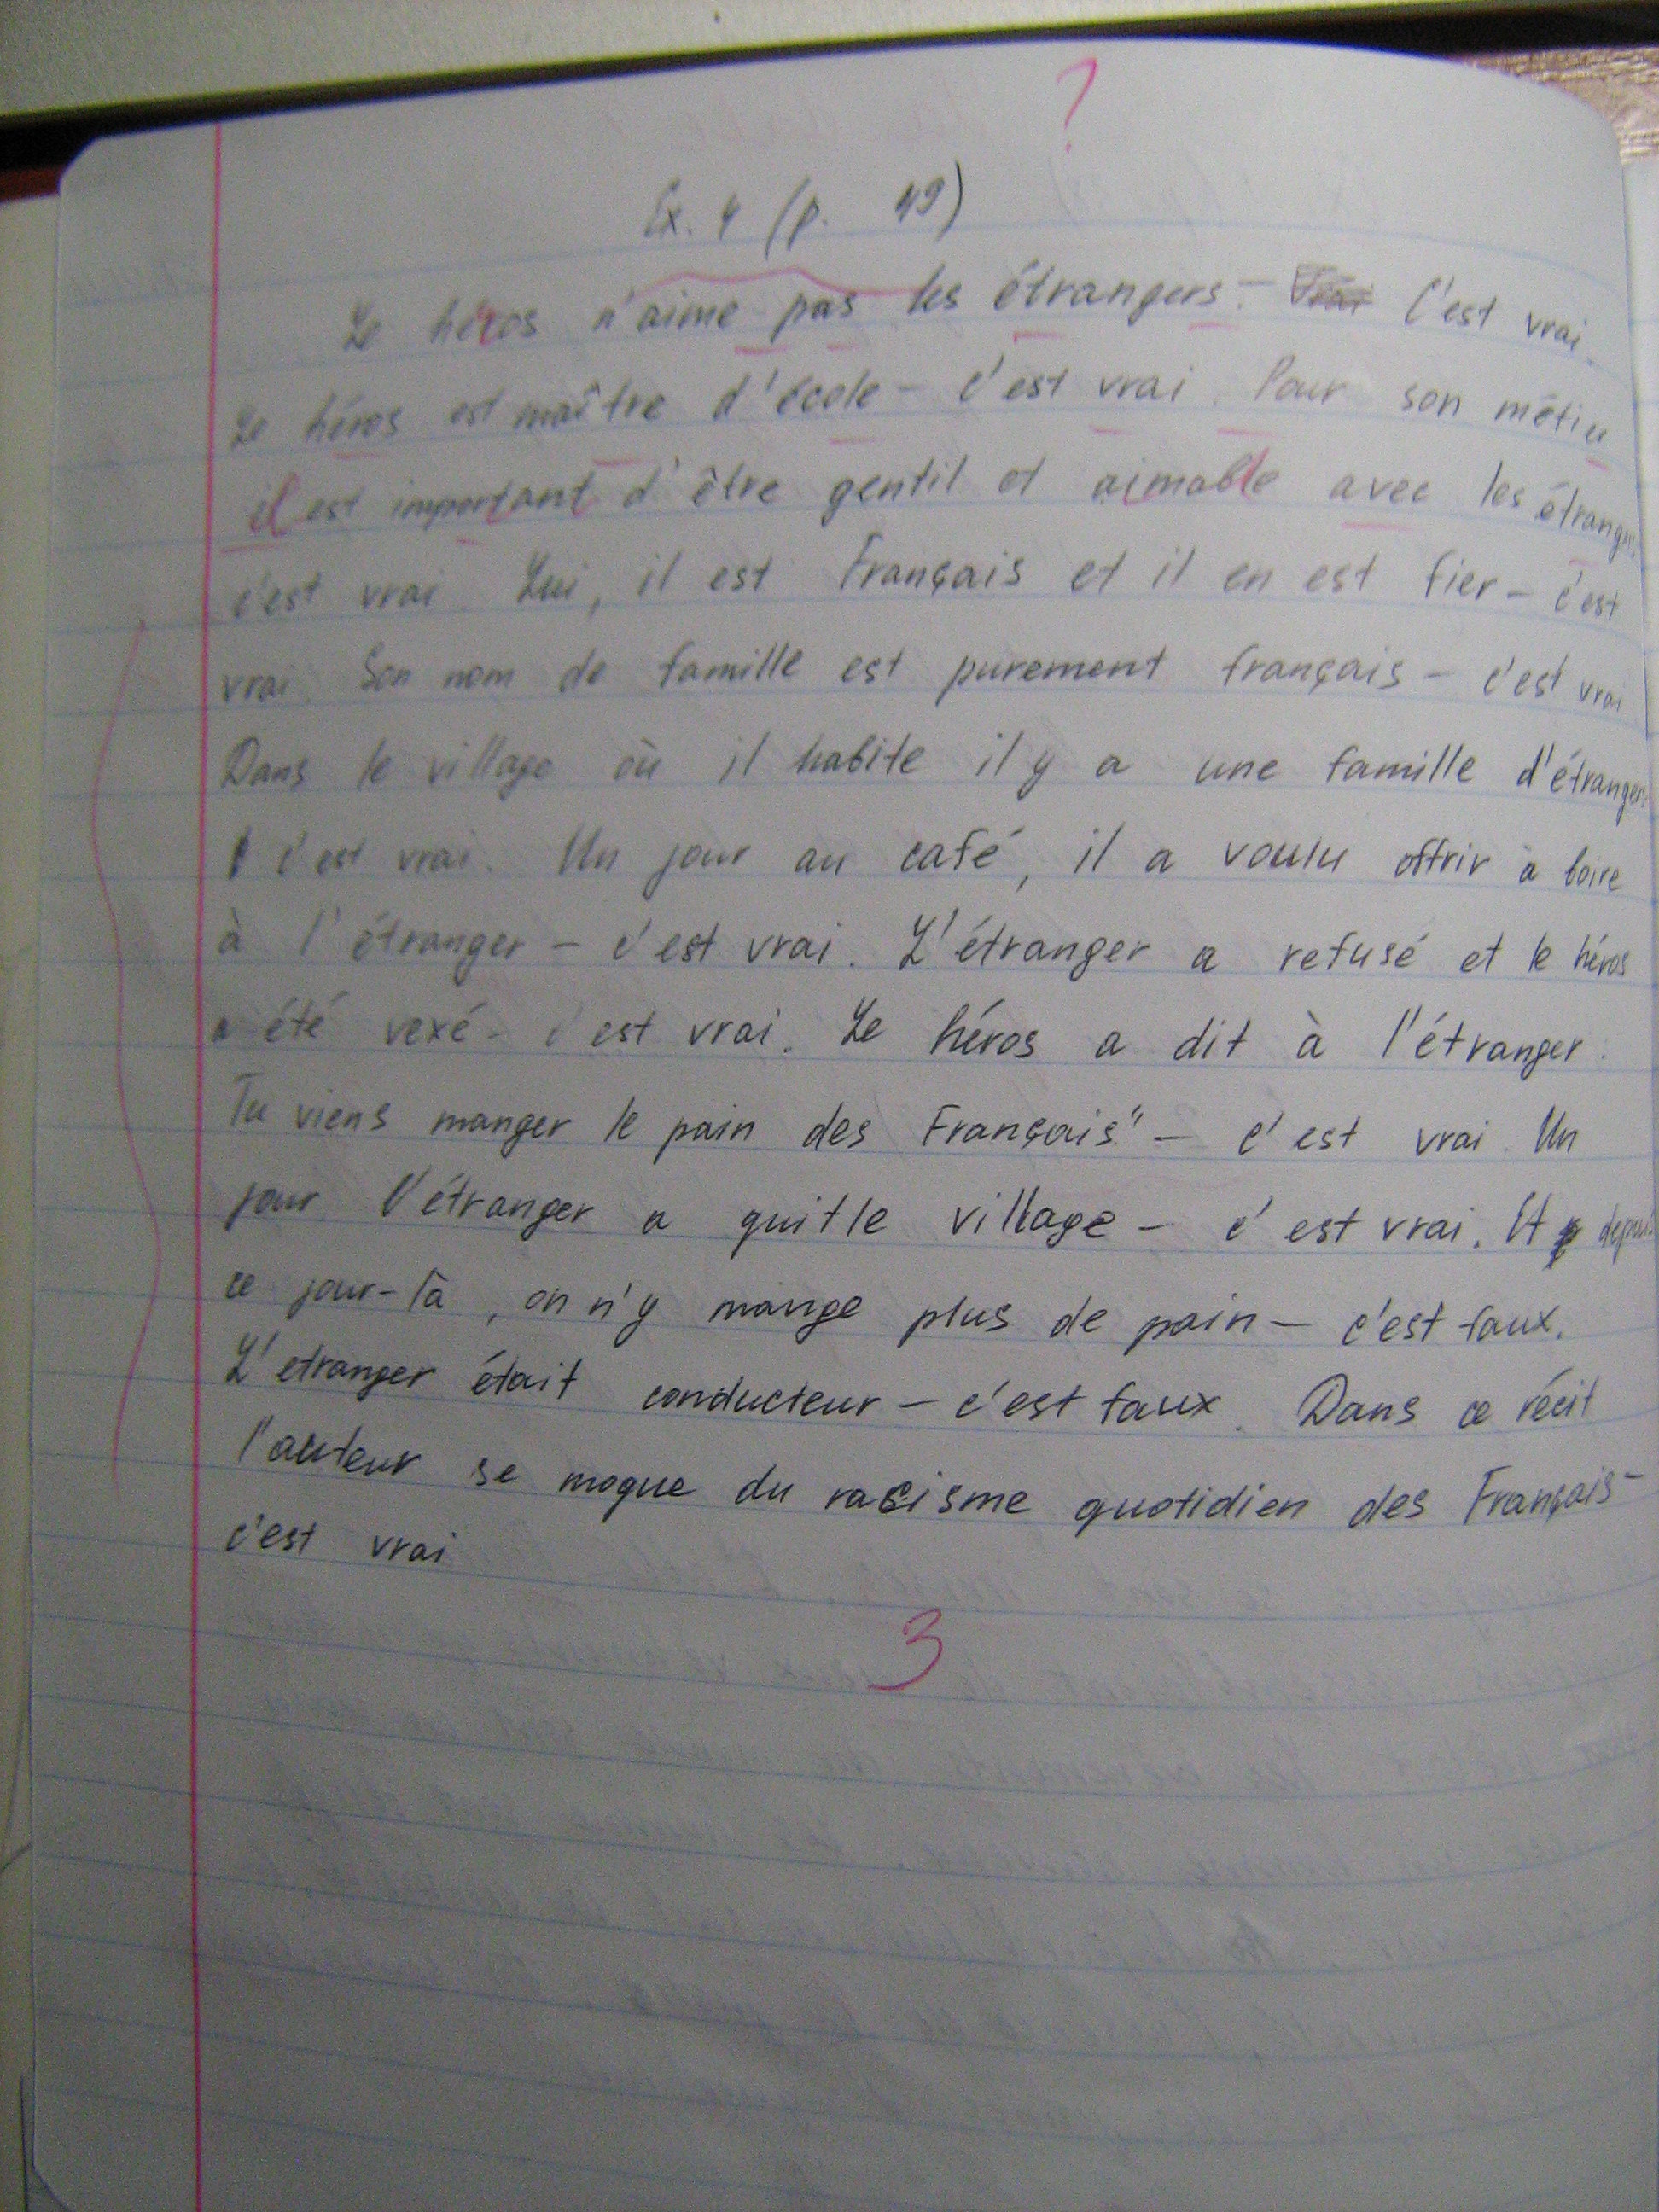 ?
Ex. 4 (p. 49)
Le héros n'aime pas les étrangers - C'est vrai.
Le héros est maître d'école - c'est vrai. Pour son métier
il est important d'être gentil et aimable avec les étrangers
c'est vrai. Lui, il est Français et il en est fier - c'est
vrai. Son nom de famille est purement français - c'est vrai
Dans le village où il habite il y a une famille d'étrangers
c'est vrai. Un jour au café, il a voulu offrir à boire
à l'étranger - c'est vrai. L'étranger a refusé et le héros
a été vexé - c'est vrai. Le héros a dit à l'étranger:
Tu viens manger le pain des Français" - c'est vrai. Un
jour l'étranger a quitle village - c'est vrai. Et depuis
ce jour-là, on n'y mange plus de pain - c'est faux.
L'etranger était conducteur - c'est faux. Dans ce récit
l'auteur se moque du racisme quotidien des Français -
c'est vrai
3